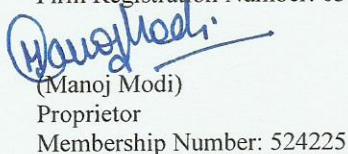 Firm Registration Number: 03
ManojModi.
(Manoj Modi)
Proprietor
Membership Number: 524225